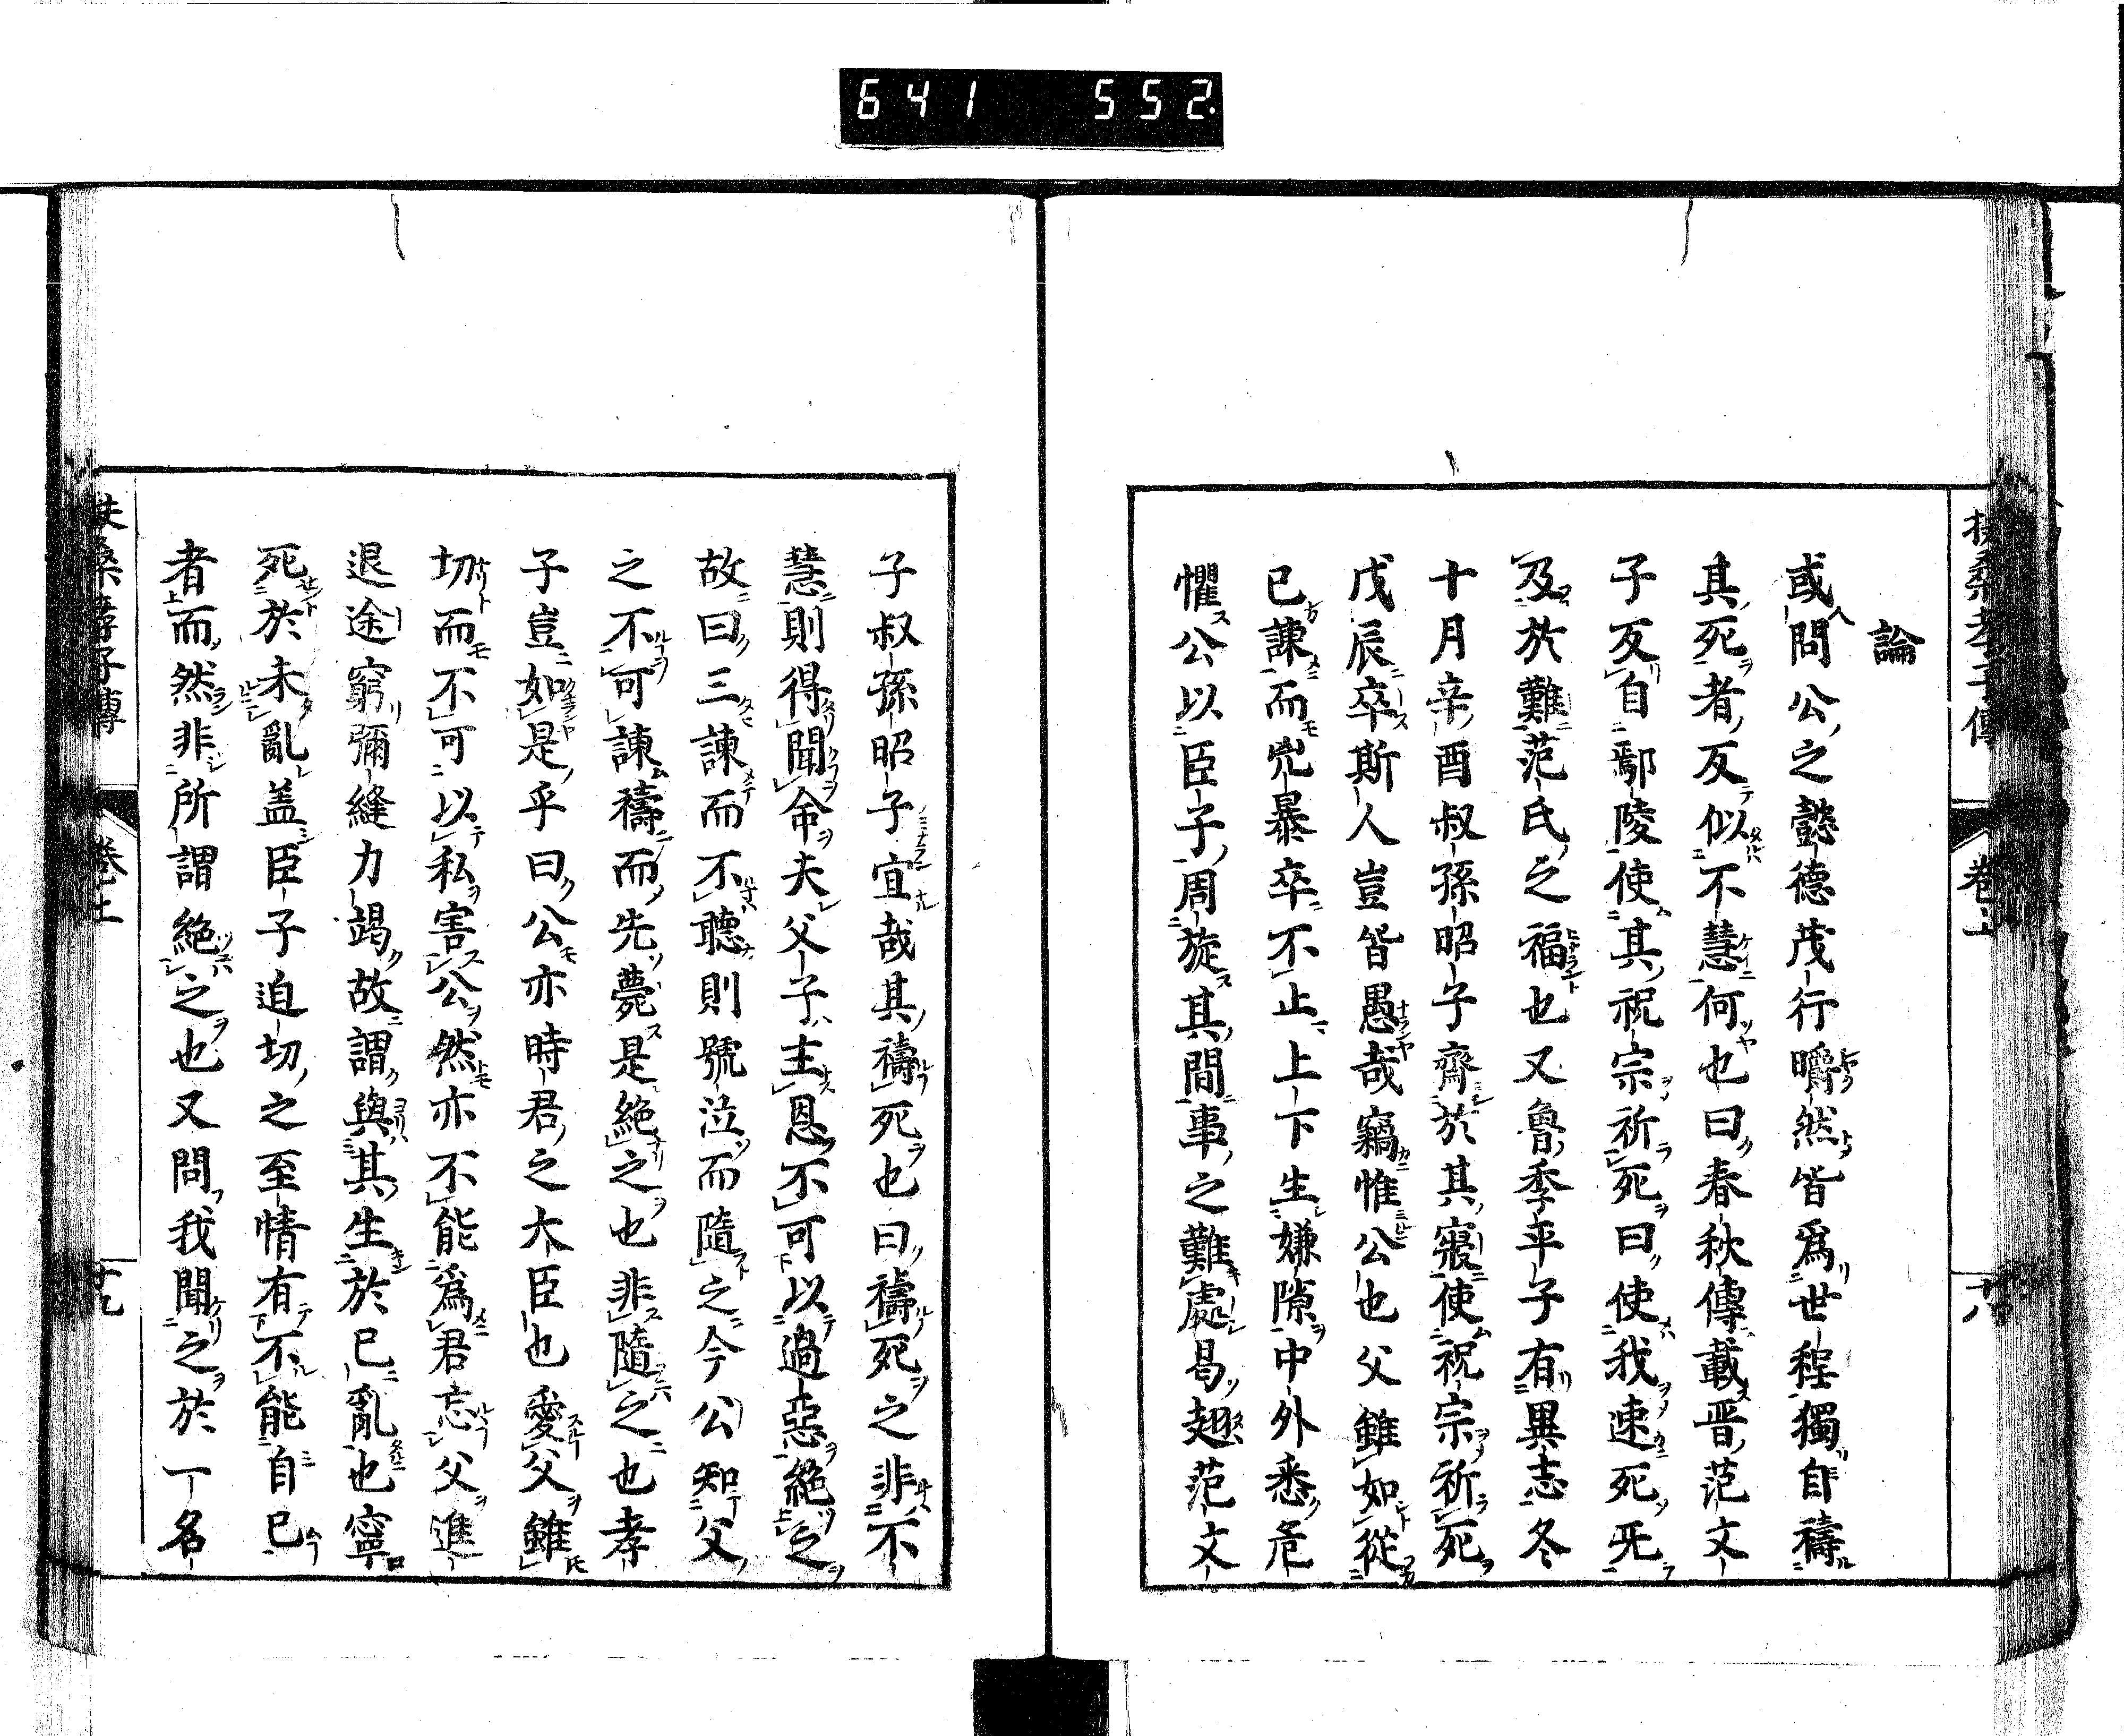 641 552
扶桑孝子傳 卷上 十八
論
或問公之懿德茂行皭然皆爲世程獨自禱
其死者反似不慧何也曰春秋傳載晋范文
子反自鄢陵使其祝宗祈死曰使我速死旡
及於難范氏之福也又魯季平子有異志冬
十月辛酉叔孫昭子齊於其寢使祝宗祈死
戊辰卒斯人豈皆愚哉竊惟公也父雖如從
已諫而兇暴卒不止上下生嫌隙中外悉危
懼公以臣子周旋其間事之難處曷趐范文
子叔孫昭子宜哉其禱死也曰禱死之非不
慧則得聞命夫父子主恩不可以過惡絕之
故曰三諫而不聽則號泣而隨之今公知父
之不可諫禱而先薨是絕之也非隨之也孝
子豈如是乎曰公亦時君之大臣也愛父雖
切而不可以私害公然亦不能爲君忘父進
退途窮彌縫力竭故謂與其生於已亂也寧
死於未亂盖臣子迫切之至情有不能自已
者而然非所謂絕之也又問我聞之於丁名
扶桑孝子傳 卷上 十九